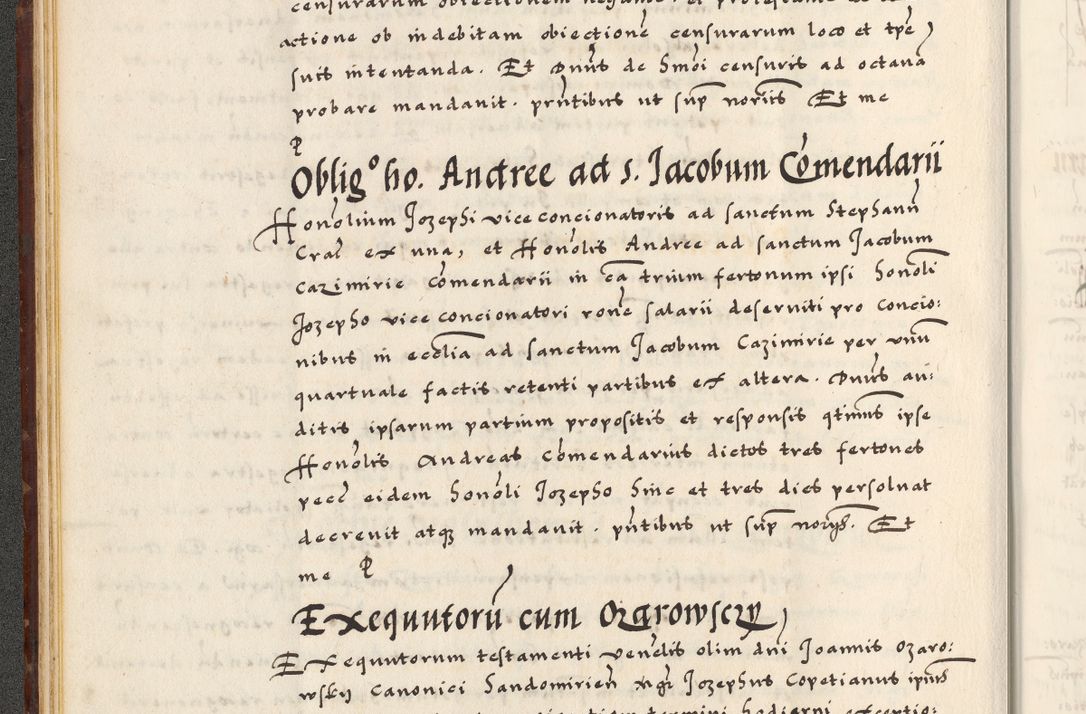 censurarum obiectionem negame
actione ob indebitam obiectionē censurarum loco et tpē
suis intentanda. Et Dnūs de Smōi censuris ad octavā
probare mandavit. pn̄tibus ut sup̄ noriīs Et me
P
Oblig° ho. Andree ad s. Jacobum Comendarii
Honōlium Jozephi vice concionatoris ad sanctum Stephanū
Crac̄ ex una, et Honōlis Andree ad sanctum Jacobum
Cazimirie Cōmendarii in cā trium fertonum ipsi honōli
Jozepho vice concionatori ronē salarii deserviti pro concio:
nibus in ecclīa ad sanctum Jacobum Cazimirie per unū
quartuale factis retenti partibus ex altera. Dnūs au:
ditis ipsarum partium propositis et responsis qtinūs ipse
Honōlis Andreas Cōmendarius dictos tres fertones
pecc̄ eidem honōli Jozepho hinc et tres dies persolvat
decrevit atq₃ mandavit. pn̄tibus ut sup̄ norijs. Et
me P
Exequutorū cum Ozarowsczy
Exequutorum testamenti venēlis olim dnī Joannis Ozaro:
wskij Canonici Sandomirien̄ Jozephus Copetianus ipinūs
termini hodierni exceptio: